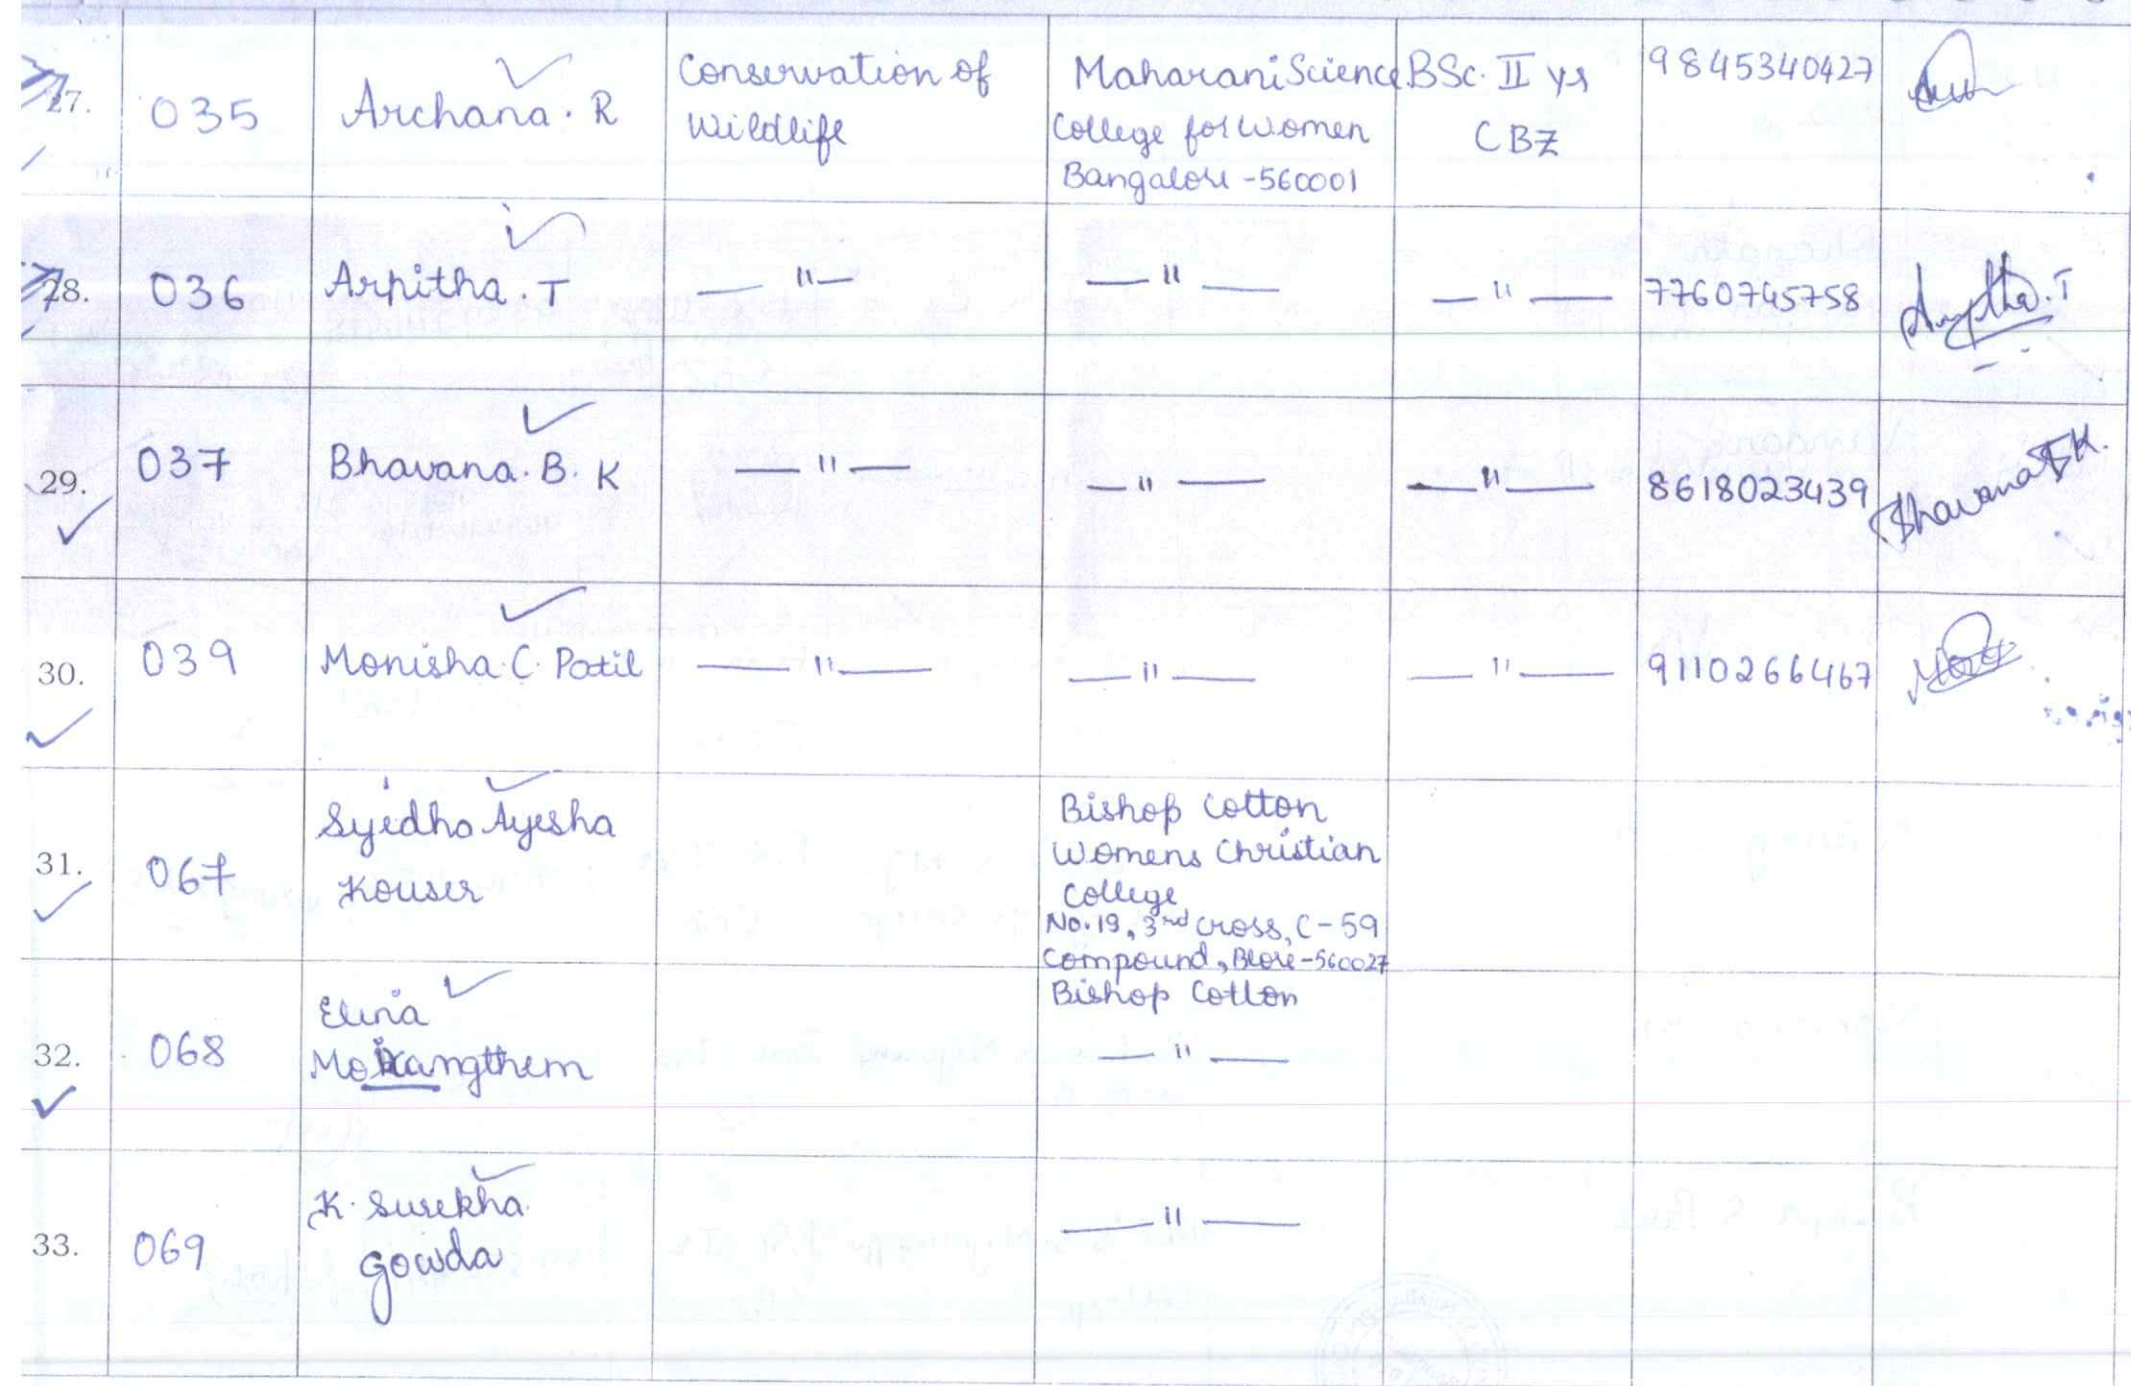 27. 035 Archana. R Conservation of Wildlife Maharani Science College for Women Bangalore -560001 BSc. II yr CBZ 9845340427
28. 036 Arpitha. T — " — — " — — " — 7760745758 Arpitha. T
29. 037 Bhavana. B. K — " — — " — — " — 8618023439 Bhavana B K.
30. 039 Monisha. C. Patil — " — — " — — " — 9110266467
31. 067 Syedha Ayesha Kouser Bishop Cotton Womens Christian College No. 19, 3rd cross, C-59 Compound, Blore-560027
32. 068 Elina Moirangthem Bishop Cotton — " —
33. 069 K. Surekha Gowda — " —